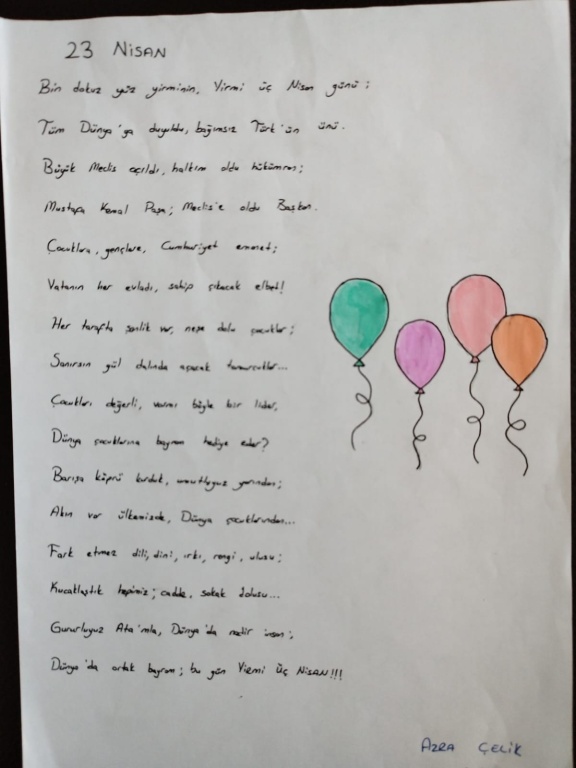 23 NİSAN
Bin dokuz yüz yirminin, Yirmi üç Nisan günü;
Tüm Dünya'ya duyuldu, bağımsız Türk'ün ünü.
Büyük Meclis açıldı, halkım oldu hükümran;
Mustafa Kemal Paşa; Meclis'e oldu Başkan.
Çocuklara, gençlere, Cumhuriyet emanet;
Vatanın her evladı, sahip çıkacak elbet!
Her tarafta şenlik var, neşe dolu çocuklar;
Sanırsın gül dalında açacak tomurcuklar...
Çocukları değerli, varmı böyle bir lider,
Dünya çocuklarına bayram hediye eder?
Barışa köprü kurduk, umutluyuz yarından;
Akın var ülkemizde, Dünya çocuklarından...
Fark etmez dili, dini, ırkı, rengi, ulusu;
Kucaklaştık hepimiz; cadde, sokak dolusu...
Gururluyuz Ata'mla, Dünya'da nadir insan;
Dünya'da ortak bayram; bu gün Yirmi Üç NİSAN!!!
AZRA ÇELİK